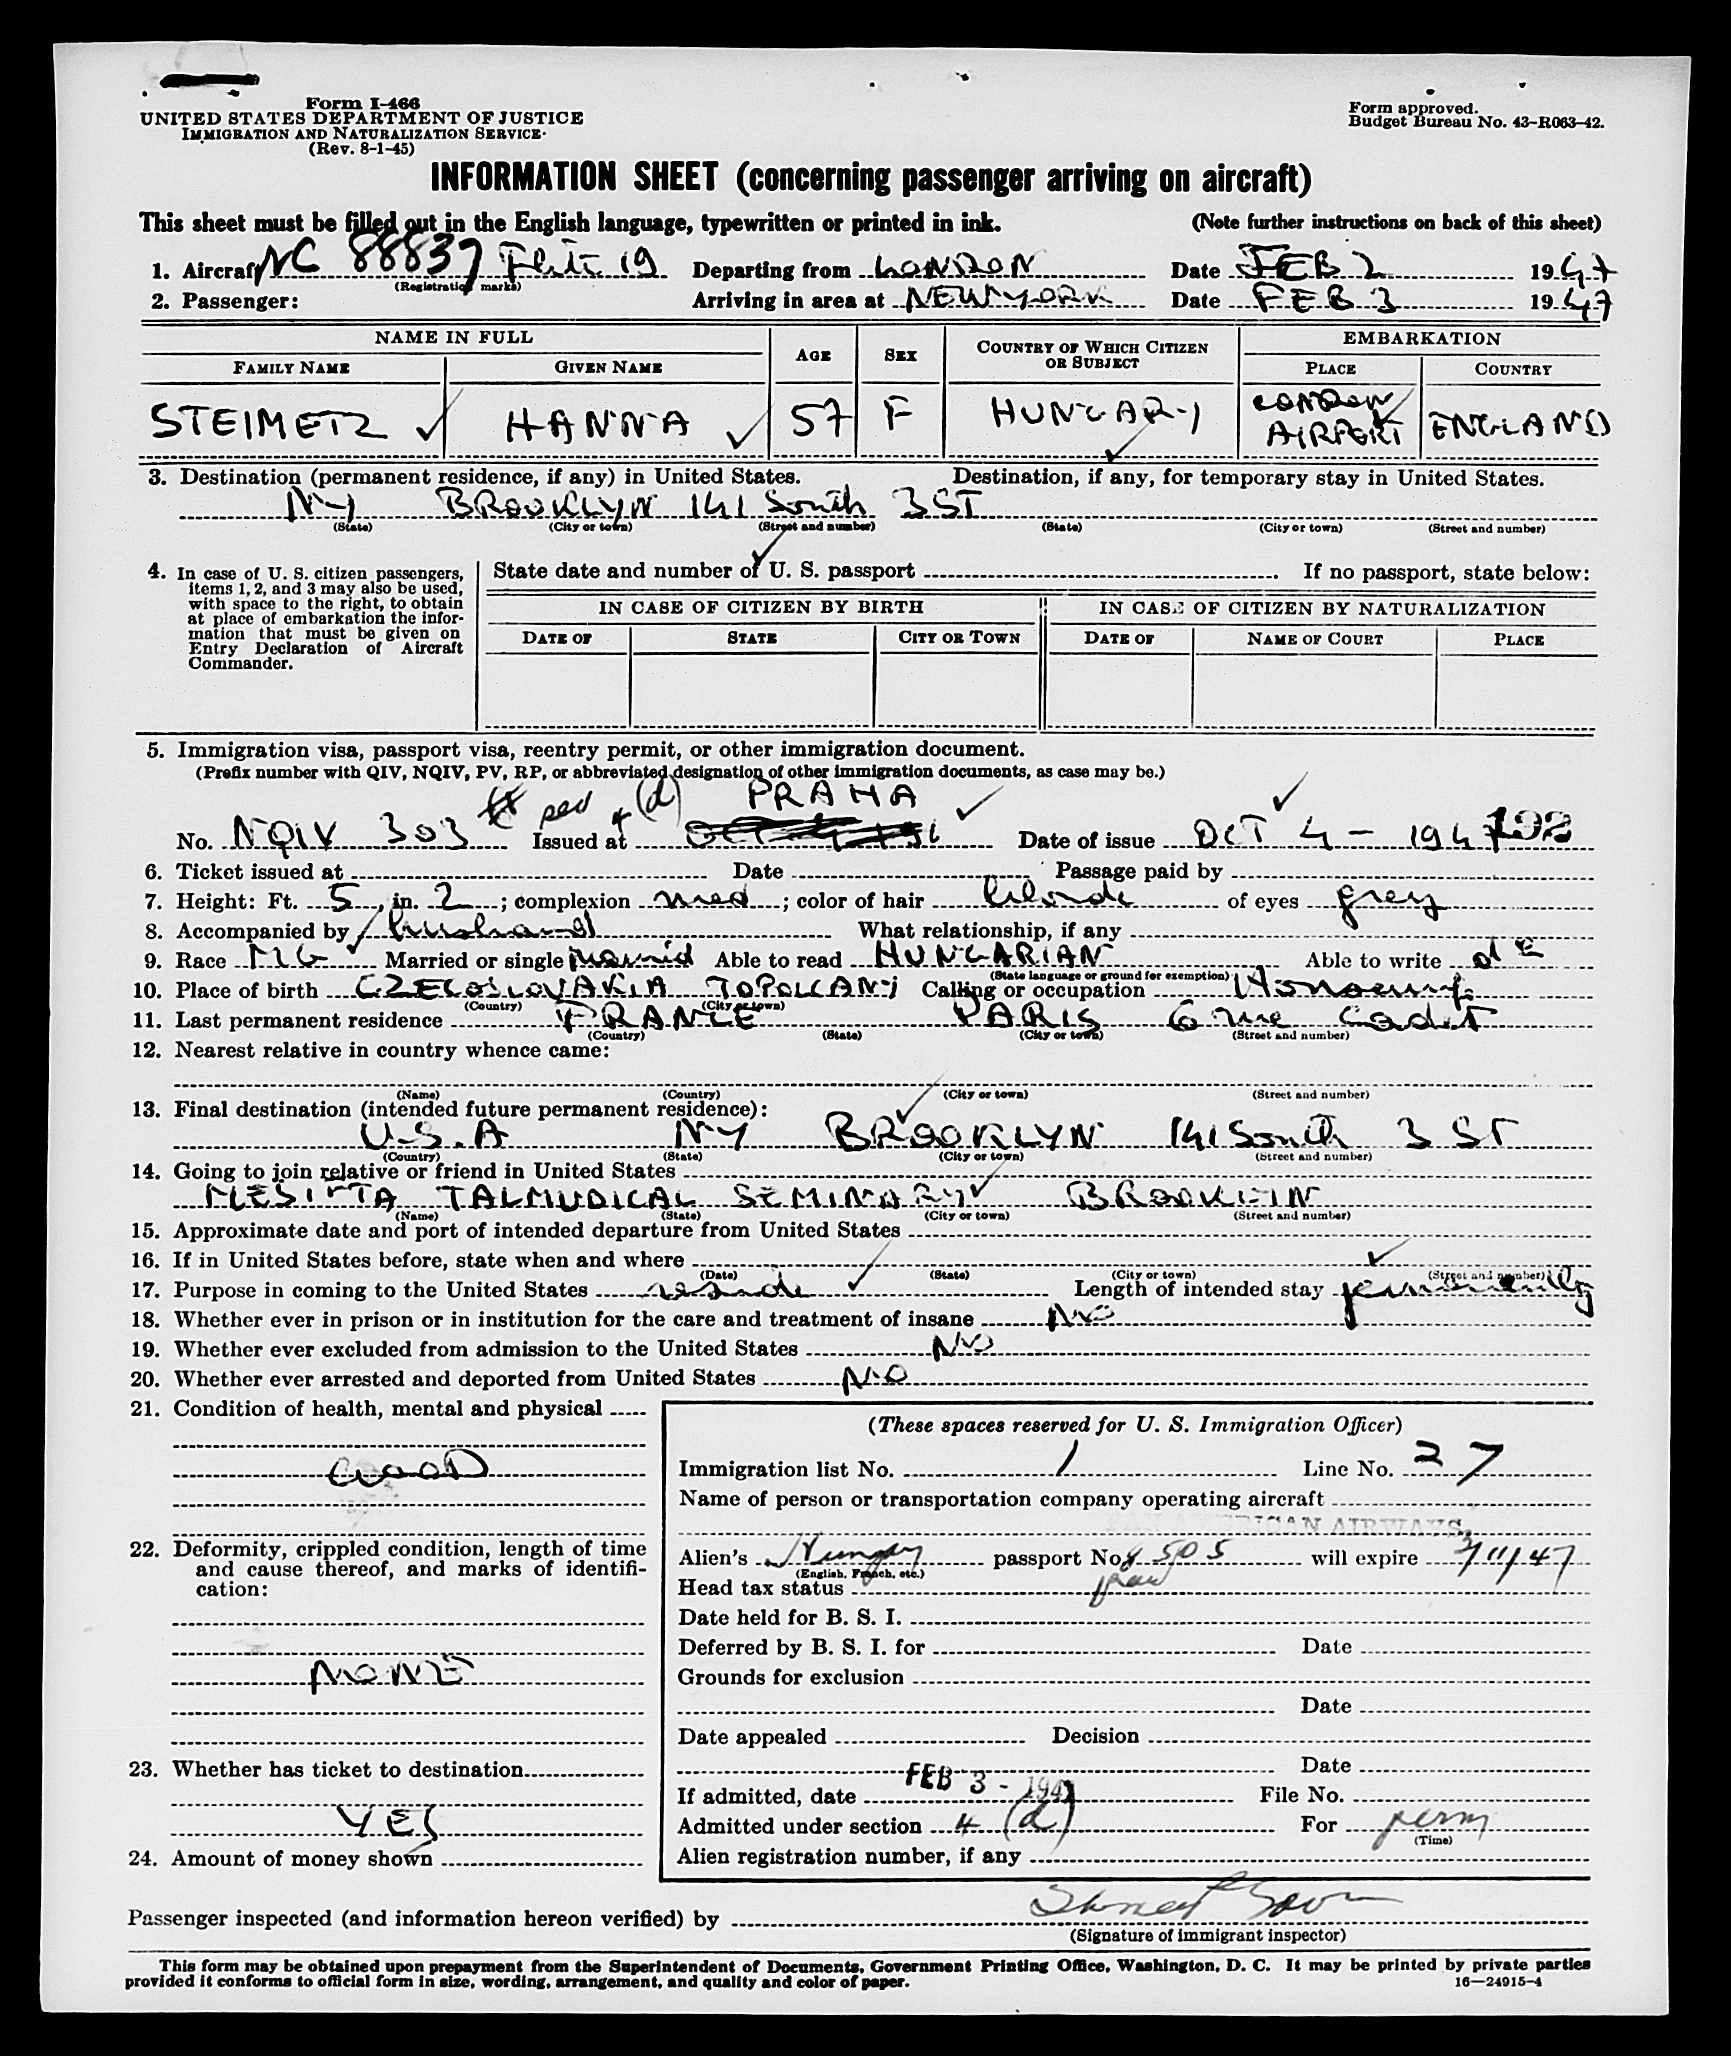 Form I-466
UNITED STATES DEPARTMENT OF JUSTICE
IMMIGRATION AND NATURALIZATION SERVICE
(Rev. 8-1-45)
Form approved.
Budget Bureau No. 43-R063-42.
INFORMATION SHEET (concerning passenger arriving on aircraft)
This sheet must be filled out in the English language, typewritten or printed in ink. (Note further instructions on back of this sheet)
1. Aircraft NC 88837 Flite 19 Departing from LONDON Date FEB 2 1947
(Registration marks)
2. Passenger: Arriving in area at NEW YORK Date FEB 3 1947
NAME IN FULL AGE SEX COUNTRY OF WHICH CITIZEN OR SUBJECT EMBARKATION
FAMILY NAME GIVEN NAME PLACE COUNTRY
STEIMETZ HANNA 57 F HUNGARY LONDON AIRPORT ENGLAND
3. Destination (permanent residence, if any) in United States. Destination, if any, for temporary stay in United States.
NY BROOKLYN 141 South 3 ST
(State) (City or town) (Street and number) (State) (City or town) (Street and number)
4. In case of U. S. citizen passengers, items 1, 2, and 3 may also be used, with space to the right, to obtain at place of embarkation the information that must be given on Entry Declaration of Aircraft Commander.
State date and number of U. S. passport If no passport, state below:
IN CASE OF CITIZEN BY BIRTH IN CASE OF CITIZEN BY NATURALIZATION
DATE OF STATE CITY OR TOWN DATE OF NAME OF COURT PLACE
5. Immigration visa, passport visa, reentry permit, or other immigration document.
(Prefix number with QIV, NQIV, PV, RP, or abbreviated designation of other immigration documents, as case may be.)
4 (d) PRAHA
No. NQIV 303 Issued at Date of issue OCT 4 - 194
6. Ticket issued at Date Passage paid by
7. Height: Ft. 5, in. 2; complexion med; color of hair blonde of eyes grey
8. Accompanied by husband What relationship, if any
9. Race MG Married or single married Able to read HUNGARIAN Able to write
(State language or ground for exemption)
10. Place of birth CZECOSLOVAKIA TOPOLCANY Calling or occupation
(Country) (City or town)
11. Last permanent residence FRANCE PARIS 6 rue Cadet
(Country) (State) (City or town) (Street and number)
12. Nearest relative in country whence came:
(Name) (Country) (City or town) (Street and number)
13. Final destination (intended future permanent residence):
U.S.A NY BROOKLYN 141 South 3 ST
(Country) (State) (City or town) (Street and number)
14. Going to join relative or friend in United States
MESIFTA TALMUDICAL SEMINARY BROOKLIN
(Name) (State) (City or town) (Street and number)
15. Approximate date and port of intended departure from United States
16. If in United States before, state when and where
(Date) (State) (City or town) (Street and number)
17. Purpose in coming to the United States reside Length of intended stay permanently
18. Whether ever in prison or in institution for the care and treatment of insane NO
19. Whether ever excluded from admission to the United States NO
20. Whether ever arrested and deported from United States NO
21. Condition of health, mental and physical
GOOD
22. Deformity, crippled condition, length of time and cause thereof, and marks of identification:
NONE
23. Whether has ticket to destination
YES
24. Amount of money shown
(These spaces reserved for U. S. Immigration Officer)
Immigration list No. 1 Line No. 27
Name of person or transportation company operating aircraft
PAN AMERICAN AIRWAYS
Alien's Hungary passport No. 8505 will expire 3/11/47
(English, French, etc.)
Head tax status paid
Date held for B. S. I.
Deferred by B. S. I. for Date
Grounds for exclusion
Date
Date appealed Decision
Date
If admitted, date FEB 3 - 1947 File No.
Admitted under section 4 (d) For perm
(Time)
Alien registration number, if any
Passenger inspected (and information hereon verified) by
(Signature of immigrant inspector)
This form may be obtained upon prepayment from the Superintendent of Documents, Government Printing Office, Washington, D. C. It may be printed by private parties
provided it conforms to official form in size, wording, arrangement, and quality and color of paper. 16—24915-4